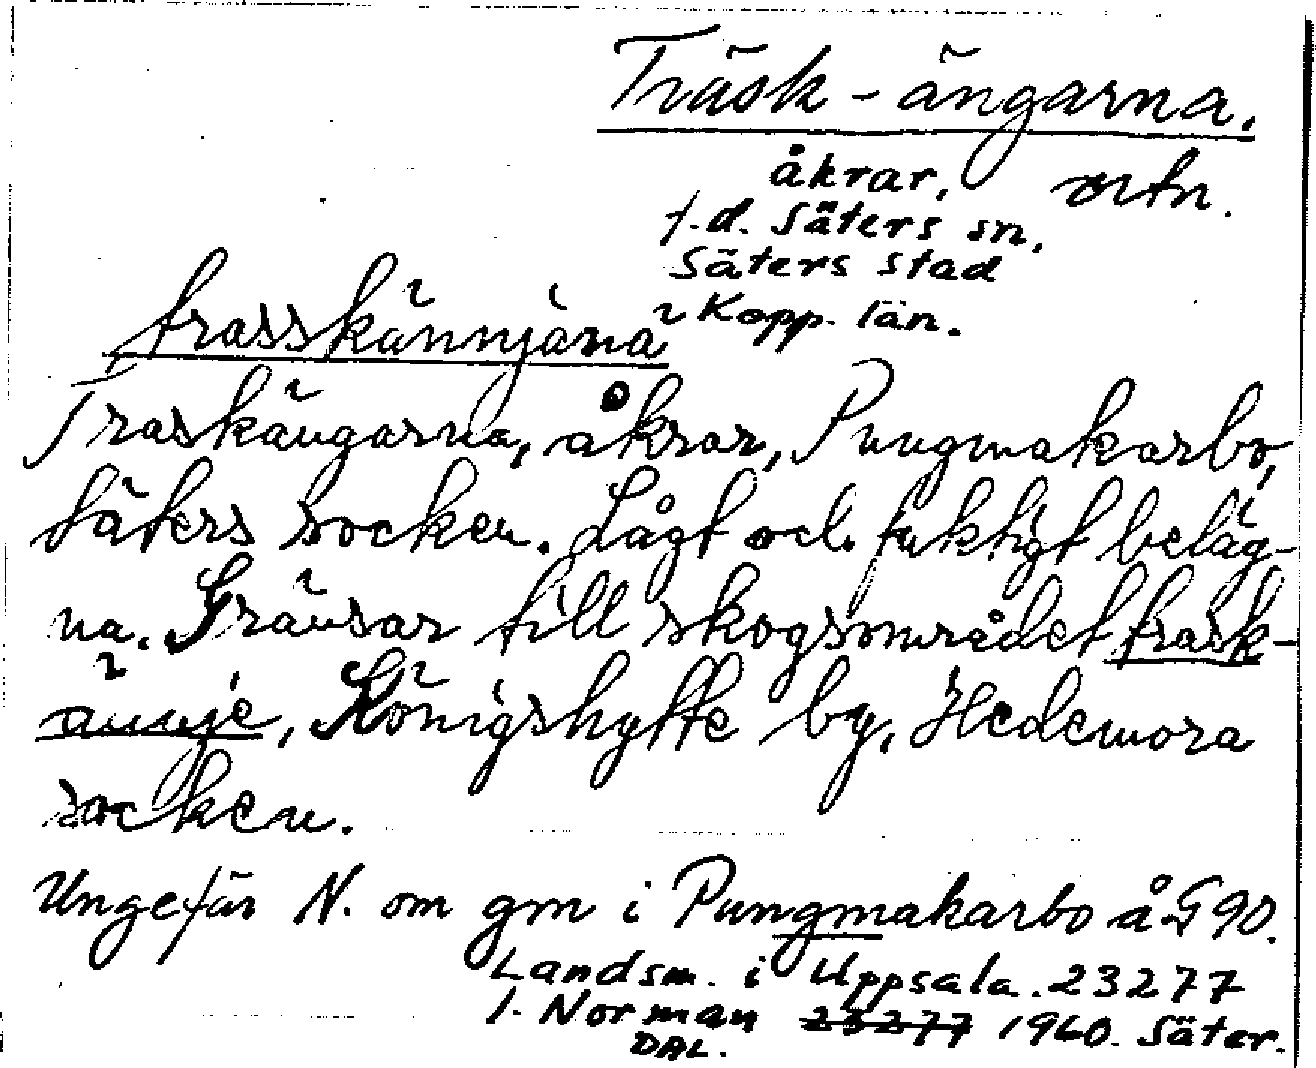 Träsk-ängarna.
åkrar. ortn.
f.d. Säters sn.
Säters stad
Kopp. län.
trasskännjana
Traskängarna, åkrar, Pungmakarbo,
Säters socken. Lågt och fuktigt beläg-
na. Gränsar till skogsområdet trask-
ännje, Königshytte by, Hedemora
socken.
Ungefär N. om gm i Pungmakarbo å G 90.
Landsm. i Uppsala. 23277
I. Norman 23277 1960. Säter.
DAL.